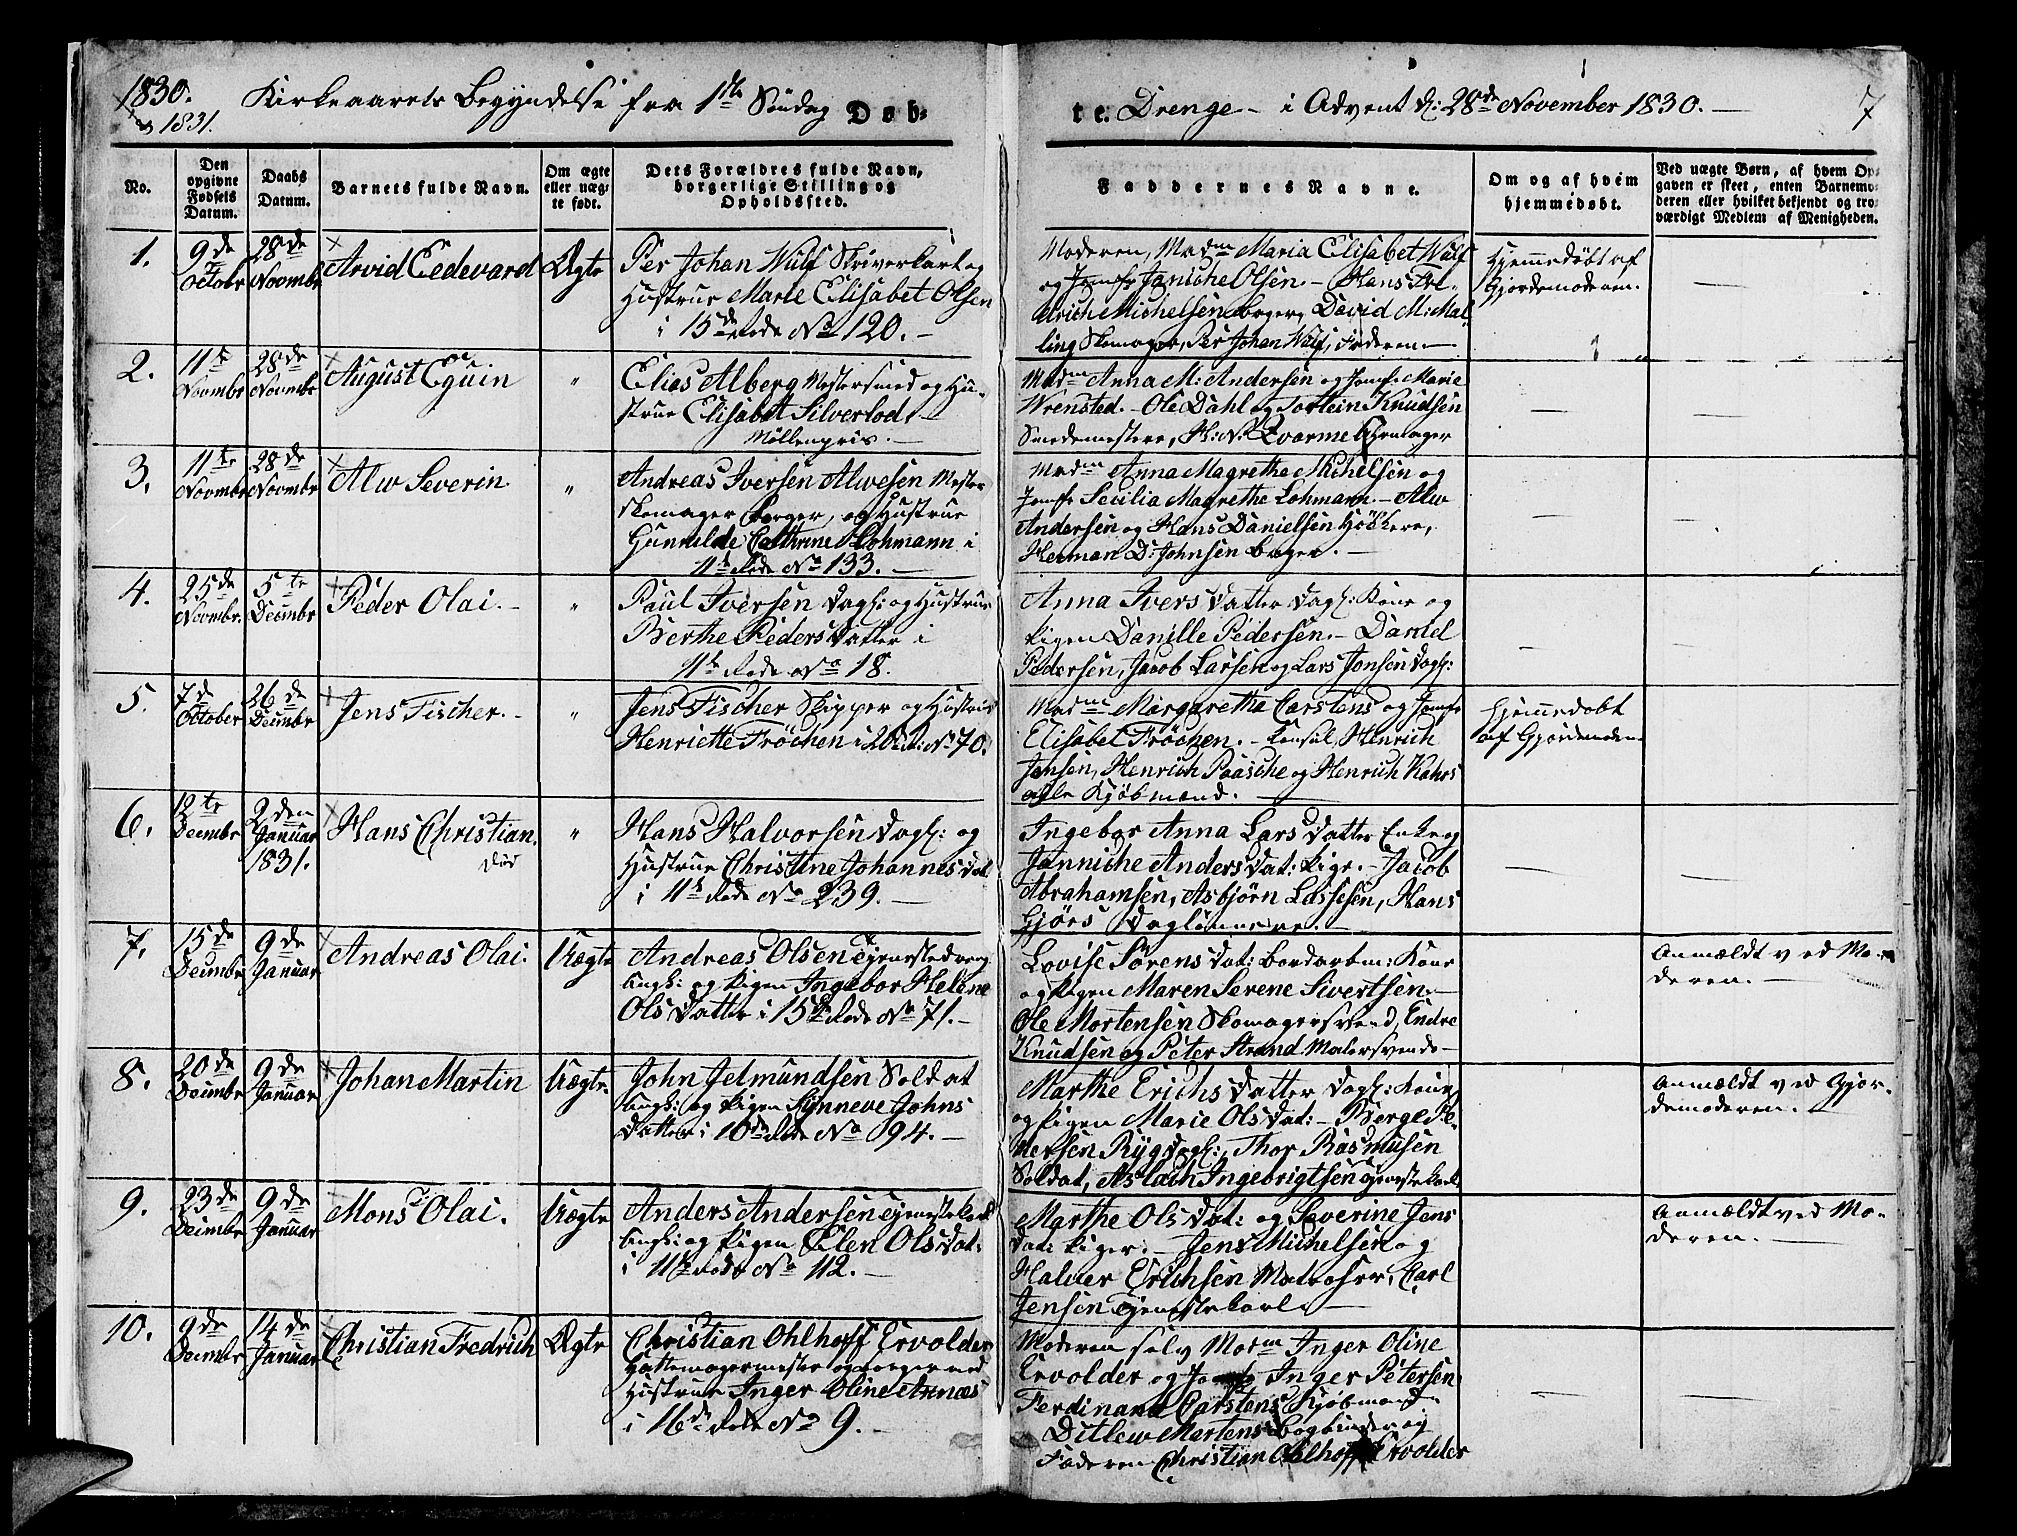 1830.
& 1831.
Kirkeaarets Begyndelse fra 1ste Søndag Døb-
te Drenge - i Advent d: 28de November 1830. -
7
No.
Den opgivne Fødsels Datum.
Daabs Datum.
Barnets fulde Navn.
Om ægte eller uægte født.
Dets Forældres fulde Navn, borgerlige Stilling og Opholdssted.
Faddernes Navne.
Om og af hvem hjemmedøbt.
Ved uægte Børn, af hvem Opgaven er skeet, enten Barnemoderen eller hvilket bekjendt og troværdigt Medlem af Menigheden.
1.
9de October
28de Novembr
Arvid Eedevard
Ægte
Per Johan Wulf Skriverkarl og
Hustrue Marie Elisabet Olsen
i 15de Rode No 120. -
Moderen, Madm Maria Elisabet Wulf
og Jomfr Janiche Olsen. - Hans Fre-
drich Michelsen Borger, David M: Mal-
ling Skomager, Per Johan Wulf, Faderen. -
Hjemmedøbt af
Gjordemoderen.
2.
11te Novembr
28de Novembr
August Eguin
"
Elias Alberg Mestersmed og Hu-
strue Elisabet Silverlod. -
Møllenpris. -
Madm Anna M: Andersen og Jomfr Marie
Wrensted. - Ole Dahl og Tostein Knudsen
Smedemestere, H: N:
3.
11te Novembr
28de Novembr
Alw Severin.
"
Andreas Iversen Alwesen Mester
Skomager Borger, og Hustrue
Gunnilde Cathrine Lohmann i
11te Rode No 133. -
Madm Anna Magrethe Michelsen og
Jomfr Secilia Magrethe Lohmann. - Alw
Andersen og Hans Danielsen Høkkere,
Herman D: Johnsen Bager. -
4.
25de Novembr.
5te Decembr
Peder Olai. -
"
Paul Iversen Dagl: og Hustrue
Berthe Peders Datter i
11te Rode No 18.
Anna Ivers Datter Dagl: Kone og
Pigen Danille Pedersen. - Daniel
Pedersen, Jacob Larsen og Lars Jonsen Dagl:
5.
7de October
26de Decembr
Jens Fischer. -
"
Jens Fischer Skipper og Hustrue
Henriette Frøchen i 20 R: No 70.
Madm Margaretha Carstens og Jomfr
Elisabet Frøchen. - Konsul Henrich
Jansen, Henrich Paasche og Henrich Kahrs
alle Kjøbmænd. -
Hjemmedøbt
af Gjordemoderen
6.
12te Decembr
2den Januar 1831.
Hans Christian.
død
"
Hans Halvorsen Dagl: og
Hustrue Christine Johannes Dat:
i 11te Rode No 239. -
Ingebor Anna Lars Datter Enke og
Janniche Anders Dat: Pige. - Jacob
Abrahamsen, Asbjørn Lassesen, Hans
Gjørs Daglønnere. -
7.
15de Decembr
9de Januar
Andreas Olai.
Uægte
Andreas Olsen Tjenestedreng
Ungk: og Pigen Ingebor Helene
Ols Datter i 15de Rode No 71. -
Lovise Sørens Dat: Bordarbm: Kone
og Pigen Maren Serene Sivertsen. -
Ole Mortensen Skomagersvend, Endre
Knudsen og Peter Strand Malersvende -
Anmældt ved Mo-
deren. -
8.
20de Decembr
9de Januar
Johan Martin
Uægte.
John Jelmundsen Soldat
Ungk: og Pigen Synneve Johns
Datter i 10de Rode No 94. -
Marthe Erichs Datter Dagl: Kone
og Pigen Marie Ols Dat: - Børge Pe-
nersen Ryg Dagl:, Thor Rasmusen
Soldat, Aslach Ingebrigtsen Tjenestekarl.
Anmældt ved Gjor-
demoderen. -
9.
23de Decembr
9de Januar
Mons Olai.
Uægte
Anders Andersen Tjenestekarl
Ungk: og Pigen Elen Ols Dat:
i 11te Rode No 112. -
Marthe Ols Dat: og Severine Jens
Dat: Piger. - Jens Michelsen og
Halver Erichsen Matroser, Carl
Jensen Tjenestekarl. -
Anmældt ved Mo-
deren. -
10.
9de Decembr
14de Januar
Christian Fredrich
Ægte
Christian Ohlhoff Ervolder
Hattemagermester og Borger med
Hustrue Inger Oline Annæs
i 16de Rode No 9. -
Moderen selv Madm Inger Oline
Ervolder og Jomfr Inger Petersen
Ferdinand Carstens Kjøbmand
Ditlew Martens Bogbinder og
Faderen Christian Ohlhoff Ervolder